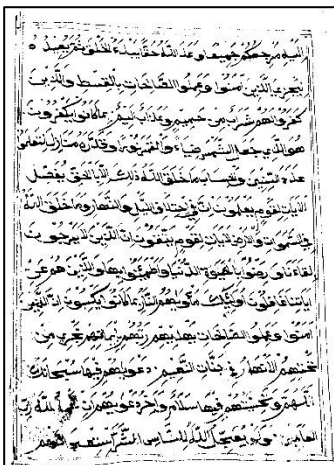 اليه مرجعكم جميعا وعد الله حقا انه يبدء الخلق ثم يعيده
ليجزى الذين آمنوا وعملوا الصالحات بالقسط والذين
كفروا لهم شراب من حميم وعذاب اليم بما كانوا يكفرون
هو الذي جعل الشمس ضياء والقمر نورا وقدره منازل لتعلموا
عدد السنين والحساب ما خلق الله ذلك الا بالحق يفصل
الآيات لقوم يعلمون ان في اختلاف الليل والنهار وما خلق الله
في السموات والارض لآيات لقوم يتقون ان الذين لا يرجون
لقاءنا ورضوا بالحيوة الدنيا واطمئنوا بها والذين هم عن
اياتنا غافلون اولئك مأويهم النار بما كانوا يكسبون ان الذين
امنوا وعملوا الصالحات يهديهم ربهم بايمانهم تجرى من
تحتهم الانهار في جنات النعيم دعويهم فيها سبحانك
اللهم وتحيتهم فيها سلام وآخر دعويهم ان الحمد لله رب
العالمين ولو يعجل الله للناس الشر استعجالهم